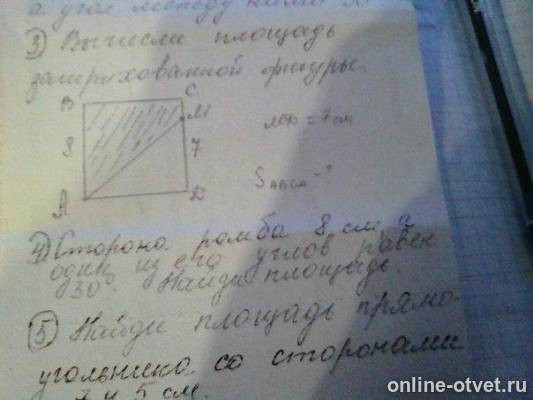 а угол между ними 30
3) Вычисли площадь
заштрихованной фигуры.
B
C
M
8
7
A
D
MD = 7 см
S ABCM - ?
4) Сторона ромба 8 см, а
один из его углов равен
30°. Найди площадь.
5) Найди площадь прямо-
угольника со сторонами
7 и 5 см.
online-otvet.ru